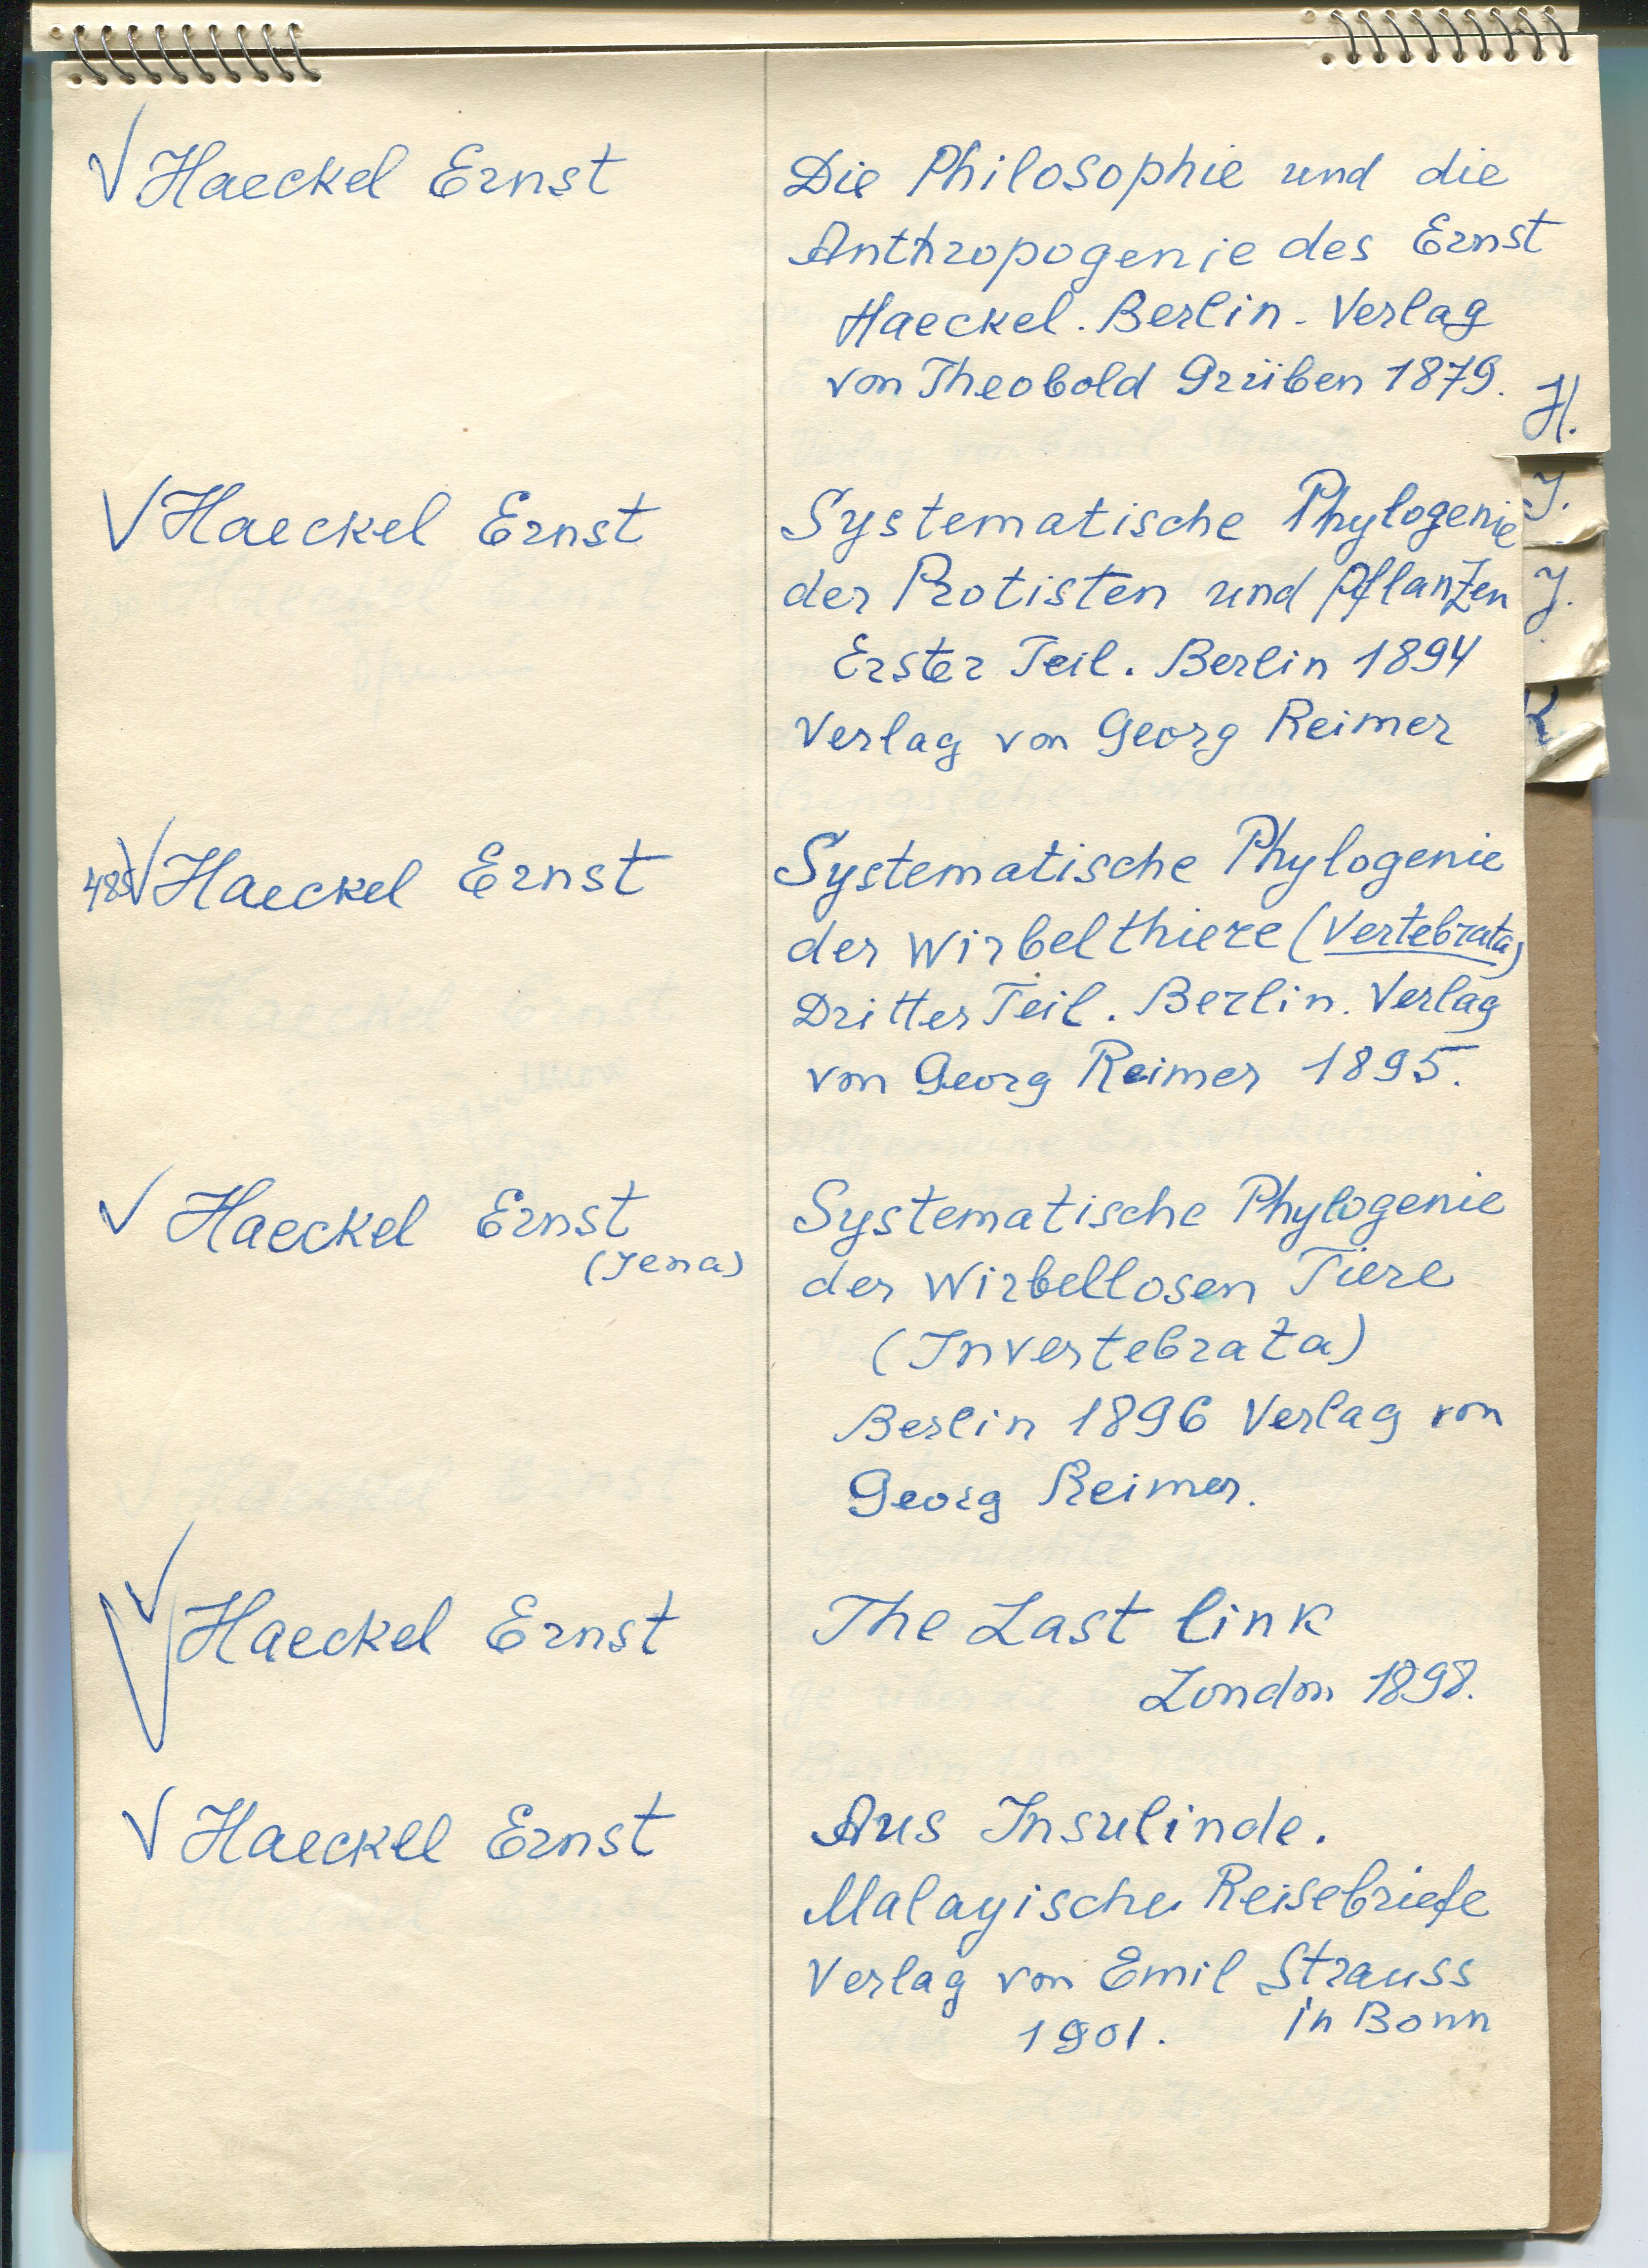 √ Haeckel Ernst
Die Philosophie und die
Anthropogenie des Ernst
Haeckel. Berlin - Verlag
von Theobold Grüben 1879.
H.
√ Haeckel Ernst
Systematische Phylogenie
der Protisten und Pflanzen
Erster Teil. Berlin 1894
Verlag von Georg Reimer
J.
J.
K
485 √ Haeckel Ernst
Systematische Phylogenie
der Wirbelthiere (Vertebrata)
Dritter Teil. Berlin. Verlag
von Georg Reimer 1895.
√ Haeckel Ernst
(Jena)
Systematische Phylogenie
der Wirbellosen Tiere
(Invertebrata)
Berlin 1896 Verlag von
Georg Reimer.
√ Haeckel Ernst
The Last link
London 1898.
√ Haeckel Ernst
Aus Insulinde.
Malayische Reisebriefe
Verlag von Emil Strauss
1901. in Bonn